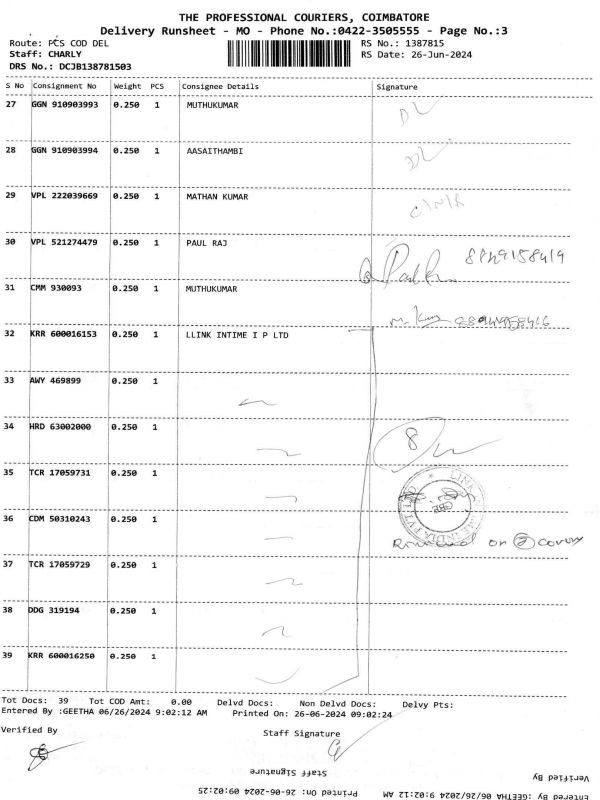 THE PROFESSIONAL COURIERS, COIMBATORE
Delivery Runsheet - MO - Phone No.:0422-3505555 - Page No.:3
Route: PCS COD DEL RS No.: 1387815
Staff: CHARLY RS Date: 26-Jun-2024
DRS No.: DCJB138781503
S No Consignment No Weight PCS Consignee Details Signature
27 GGN 910903993 0.250 1 MUTHUKUMAR
28 GGN 910903994 0.250 1 AASAITHAMBI
29 VPL 222039669 0.250 1 MATHAN KUMAR
30 VPL 521274479 0.250 1 PAUL RAJ
31 CMM 930093 0.250 1 MUTHUKUMAR
32 KRR 600016153 0.250 1 LLINK INTIME I P LTD
33 AWY 469899 0.250 1
34 HRD 63002000 0.250 1
8
35 TCR 17059731 0.250 1
36 CDM 50310243 0.250 1
on
37 TCR 17059729 0.250 1
38 DDG 319194 0.250 1
39 KRR 600016250 0.250 1
Tot Docs: 39 Tot COD Amt: 0.00 Delvd Docs: Non Delvd Docs: Delvy Pts:
Entered By :GEETHA 06/26/2024 9:02:12 AM Printed On: 26-06-2024 09:02:24
Verified By Staff Signature
Staff Signature Verified By
Printed On: 26-06-2024 09:02:25 Entered By :GEETHA 06/26/2024 9:02:12 AM